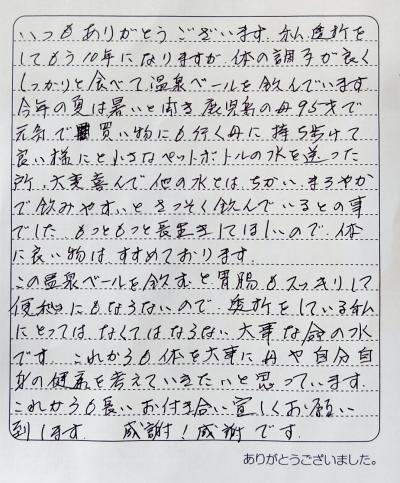 いつもありがとうございます。私透析を
してもう10年になりますが、体の調子が良く
しっかりと食べて温泉ベールを飲んでいます
今年の夏は暑いと聞き鹿児島の母95才で
元気で買い物にも行く母に持ち歩けて
良い様にと小さなペットボトルの水を送った
所、大変喜んで他の水とはちがい、まろやか
で飲みやすいとさっそく飲んでいるとの事
でした、もっともっと長置きしてほしいので、体
に良い物はすすめております。
この温泉ベールを飲むと胃腸もスッキリして
便秘にもならないので透析をしている私
にとってはなくてはならない大事な命の水
です これからも体を大事に母や自分自
身の健康を考えていきたいと思っています。
これからも長いお付き合い宜しくお願い
到します。 感謝!感謝です。
ありがとうございました。